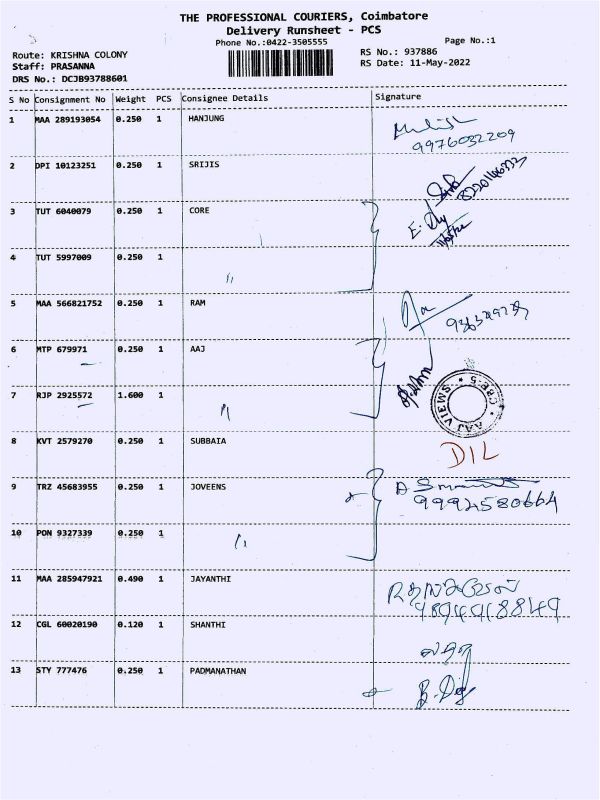 THE PROFESSIONAL COURIERS, Coimbatore
Delivery Runsheet - PCS
Phone No.:0422-3505555
Page No.:1
Route: KRISHNA COLONY
RS No.: 937886
Staff: PRASANNA
RS Date: 11-May-2022
DRS No.: DCJB93788601
S No Consignment No Weight PCS Consignee Details Signature
1 MAA 289193054 0.250 1 HANJUNG
9976032209
2 DPI 10123251 0.250 1 SRIJIS
3 TUT 6040079 0.250 1 CORE
4 TUT 5997009 0.250 1 "
5 MAA 566821752 0.250 1 RAM
6 MTP 679971 0.250 1 AAJ
7 RJP 2925572 1.600 1 "
AAJ VIEWS * CBE-5 *
8 KVT 2579270 0.250 1 SUBBAIA
DIL
9 TRZ 45683955 0.250 1 JOVEENS
9994580664
10 PON 9327339 0.250 1 "
11 MAA 285947921 0.490 1 JAYANTHI
9894918849
12 CGL 60020190 0.120 1 SHANTHI
13 STY 777476 0.250 1 PADMANATHAN